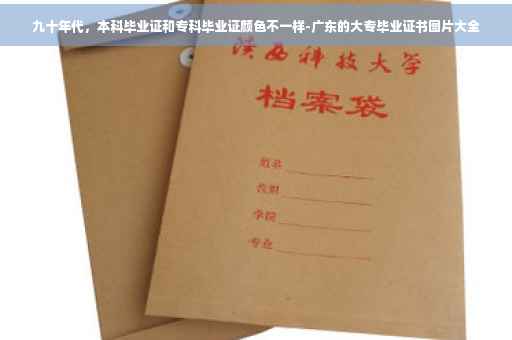 九十年代，本科毕业证和专科毕业证颜色不一样-广东的大专毕业证书图片大全
陕西科技大学
档案袋
姓名
学院
专业